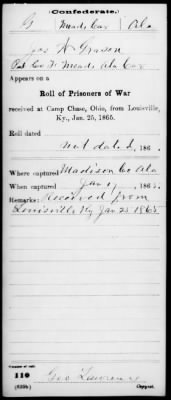 (Confederate.)
G | Meads Cav | Ala
Jas H Grason
Pvt Co. F. Meads Ala Cav
Appears on a
Roll of Prisoners of War
received at Camp Chase, Ohio, from Louisville,
Ky., Jan. 25, 1865.
Roll dated
not dated, 186 .
Where captured Madison Co Ala
When captured Jan 17, 1865.
Remarks: Received from
Louisville Ky Jan 25 1865
Number of roll:
110
(639b)
Geo Lawrence
Copyist.